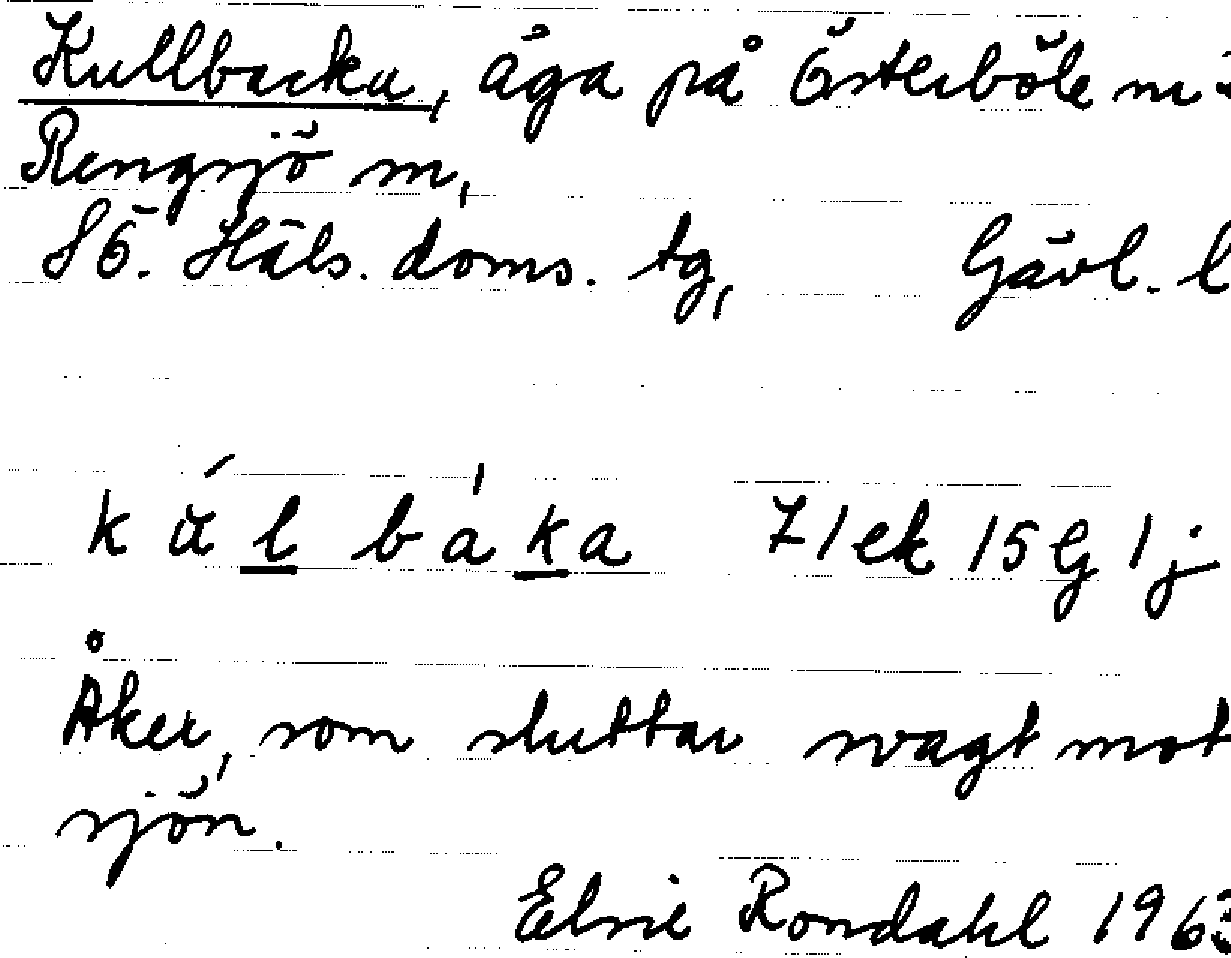 Kullbacka, äga på Österböle nr
Rengsjö sn,
Sö. Häls. doms. tg, Gävl. l
kúl báka
Åker, som sluttar svagt mot
sjön.
Elsie Rondahl 1963